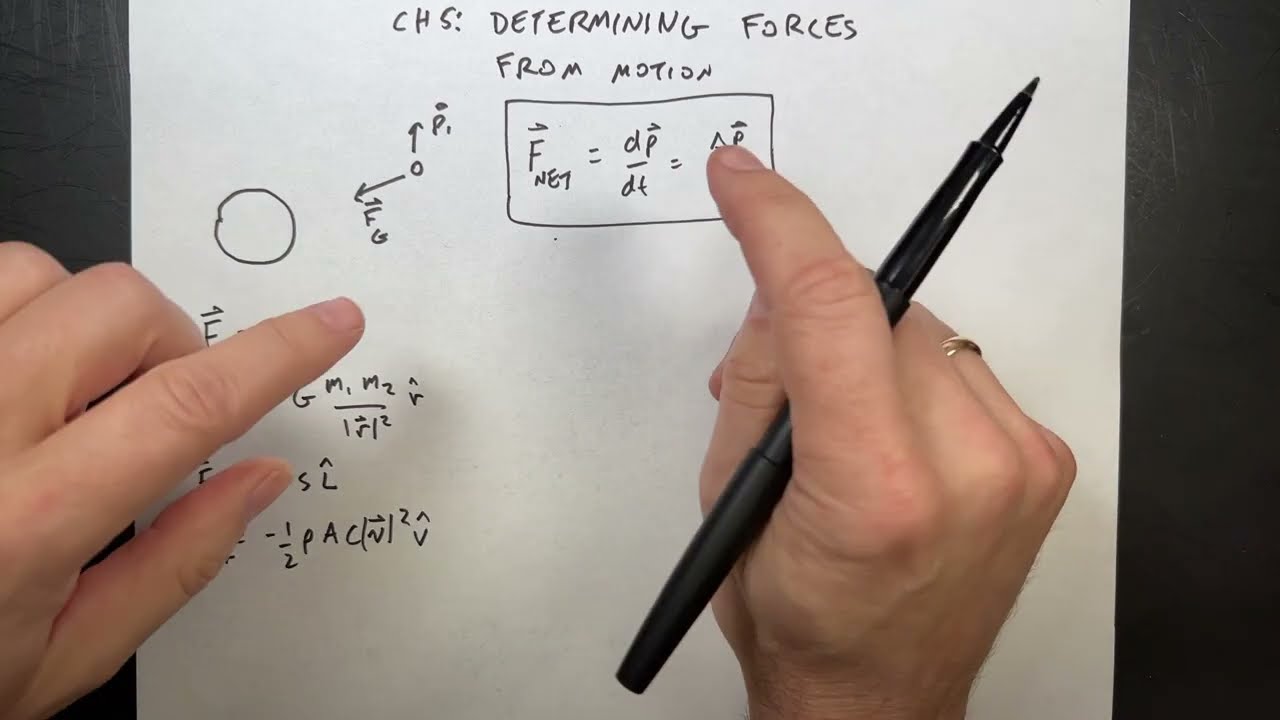 CH5: DETERMINING FORCES
FROM MOTION
p⃗₁
F⃗_G
F⃗_NET = dp⃗/dt = Δp⃗
F⃗
G m₁ m₂/|r⃗|² r̂
s L̂
-½ρAC|v⃗|² v̂